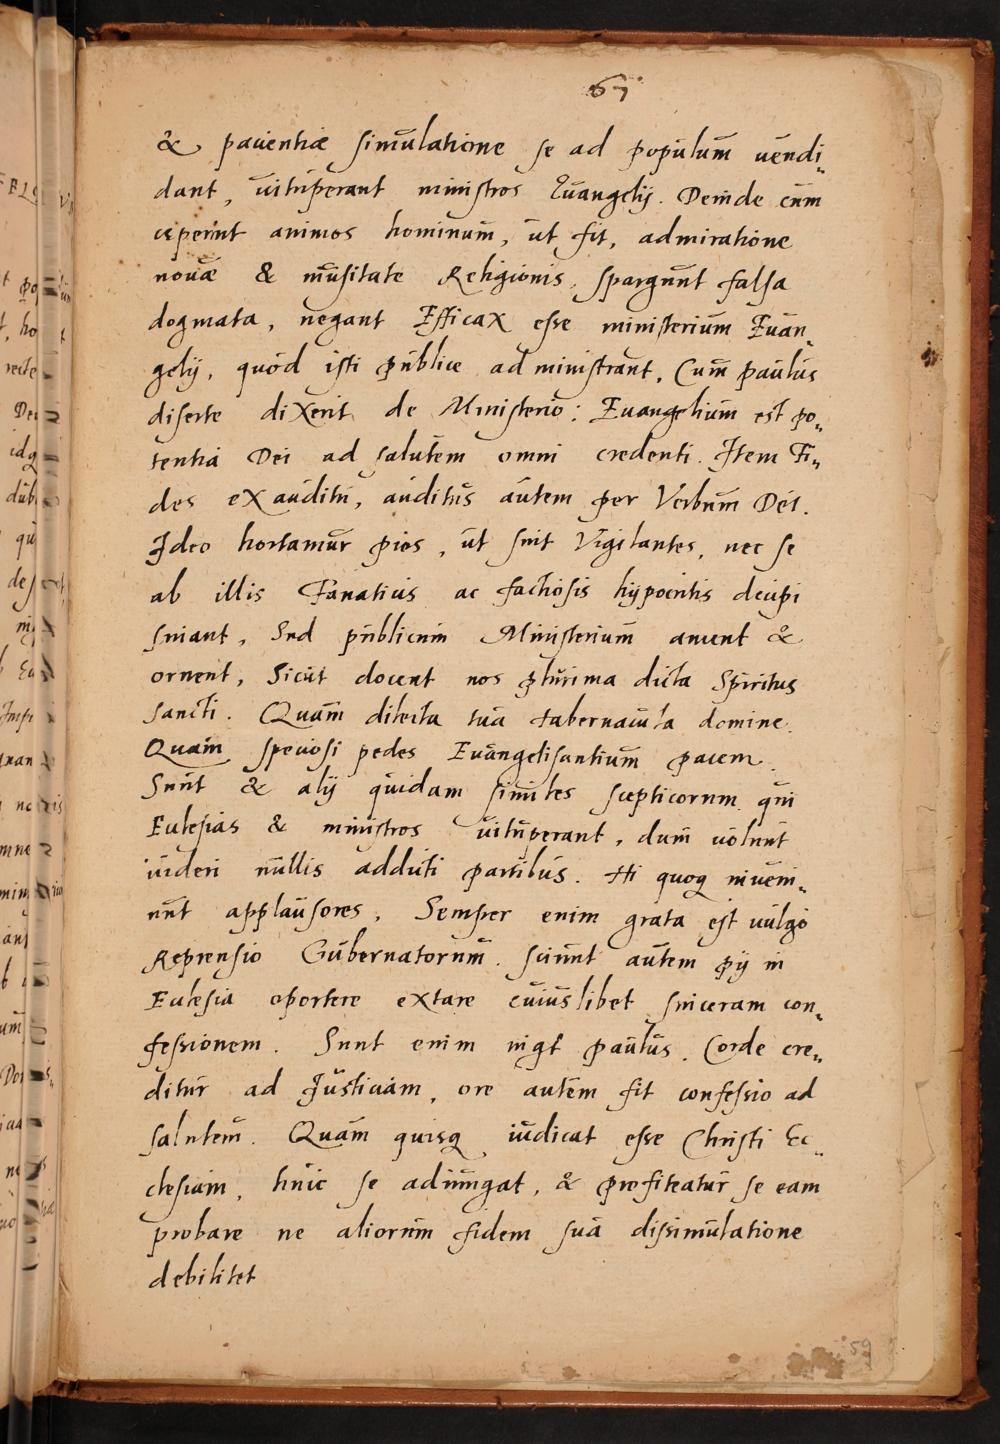 67
& pacientiæ simulatione se ad populum uendi„
dant, uituperant ministros Euangelij. Deinde cum
ceperint animos hominum, ut fit, admiratione
nouæ & inusitate Religionis, spargunt falsa
dogmata, negant Efficax esse ministerium Euan„
gelij, quod isti publice administrant, Cum paulus
diserte diXerit de Ministerio: Euangelium est po„
tentia Dei ad salutem omni credenti. Item Fi„
des eX auditu, auditus autem per Verbum Dei.
Ideo hortamur pios, ut sint Vigilantes, nec se
ab illis Fanaticis ac factiosis hypocritis decipi
sinant, Sed publicum Ministerium ament &
ornent, Sicut docent nos plurima dicta Spiritus
sancti. Quam dilecta tua tabernacula domine.
Quam speciosi pedes Euangelisantium pacem.
Sunt & alij quidam similes scepticorum qui
Eclesias & ministros uituperant, dum uolunt
uideri nullis adducti partibus. Hi quoq inueni„
unt applausores, Semper enim grata est uulgo
Reprensio Gubernatorum. sciunt autem pij in
Eclesia oportere extare cuiuslibet sinceram con„
fessionem. Sunt enim inqt paulus. Corde cre„
ditur ad Justiciam, ore autem fit confessio ad
salutem. Quam quisq iudicat esse Christi Ec„
clesiam, huic se adiungat, & profiteatur se eam
probare ne aliorum fidem sua dissimulatione
debilitet
59